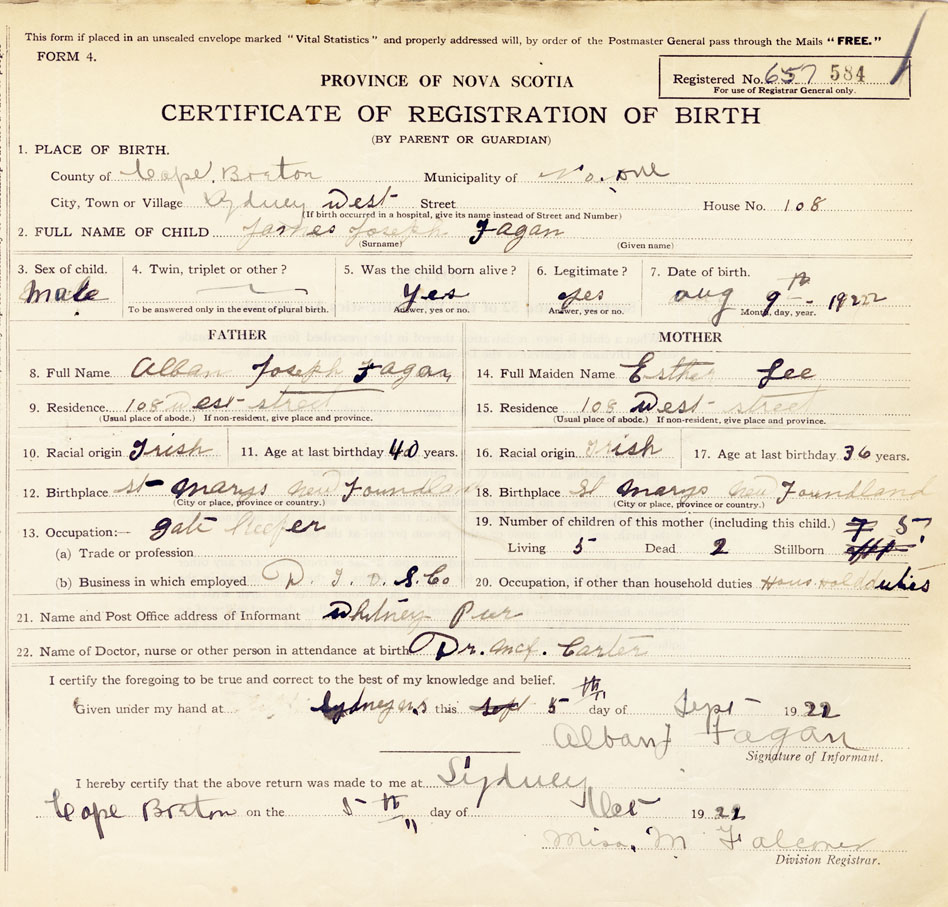 This form if placed in an unsealed envelope marked "Vital Statistics" and properly addressed will, by order of the Postmaster General pass through the Mails "FREE."
FORM 4.
Registered No. 657 584
For use of Registrar General only.
PROVINCE OF NOVA SCOTIA
CERTIFICATE OF REGISTRATION OF BIRTH
(BY PARENT OR GUARDIAN)
1. PLACE OF BIRTH.
County of Cape Breton Municipality of No. one
City, Town or Village Sydney West Street House No. 108
(If birth occurred in a hospital, give its name instead of Street and Number)
2. FULL NAME OF CHILD James Joseph Fagan
(Surname) (Given name)
3. Sex of child. 4. Twin, triplet or other? 5. Was the child born alive? 6. Legitimate? 7. Date of birth.
Male Yes yes aug 9th 1922
To be answered only in the event of plural birth. Answer, yes or no. Answer, yes or no. Month, day, year.
FATHER MOTHER
8. Full Name Alban Joseph Fagan 14. Full Maiden Name Esther Lee
9. Residence 108 West street 15. Residence 108 West street
(Usual place of abode.) If non-resident, give place and province. (Usual place of abode.) If non-resident, give place and province.
10. Racial origin Irish 11. Age at last birthday 40 years. 16. Racial origin Irish 17. Age at last birthday 36 years.
12. Birthplace St Marys New Foundland 18. Birthplace St Marys New Foundland
(City or place, province or country.) (City or place, province or country.)
13. Occupation:— gate Keeper 19. Number of children of this mother (including this child.) 7 5
(a) Trade or profession Living 5 Dead 2 Stillborn
(b) Business in which employed D. I. & S. Co 20. Occupation, if other than household duties House hold duties
21. Name and Post Office address of Informant Whitney Pier
22. Name of Doctor, nurse or other person in attendance at birth Dr. Carter
I certify the foregoing to be true and correct to the best of my knowledge and belief.
Given under my hand at Sydney N.S this Sept 5th day of Sept 1922
Alban J Fagan
Signature of Informant.
I hereby certify that the above return was made to me at Sydney
Cape Breton on the 5th day of 1922
Miss. M Falconer
Division Registrar.